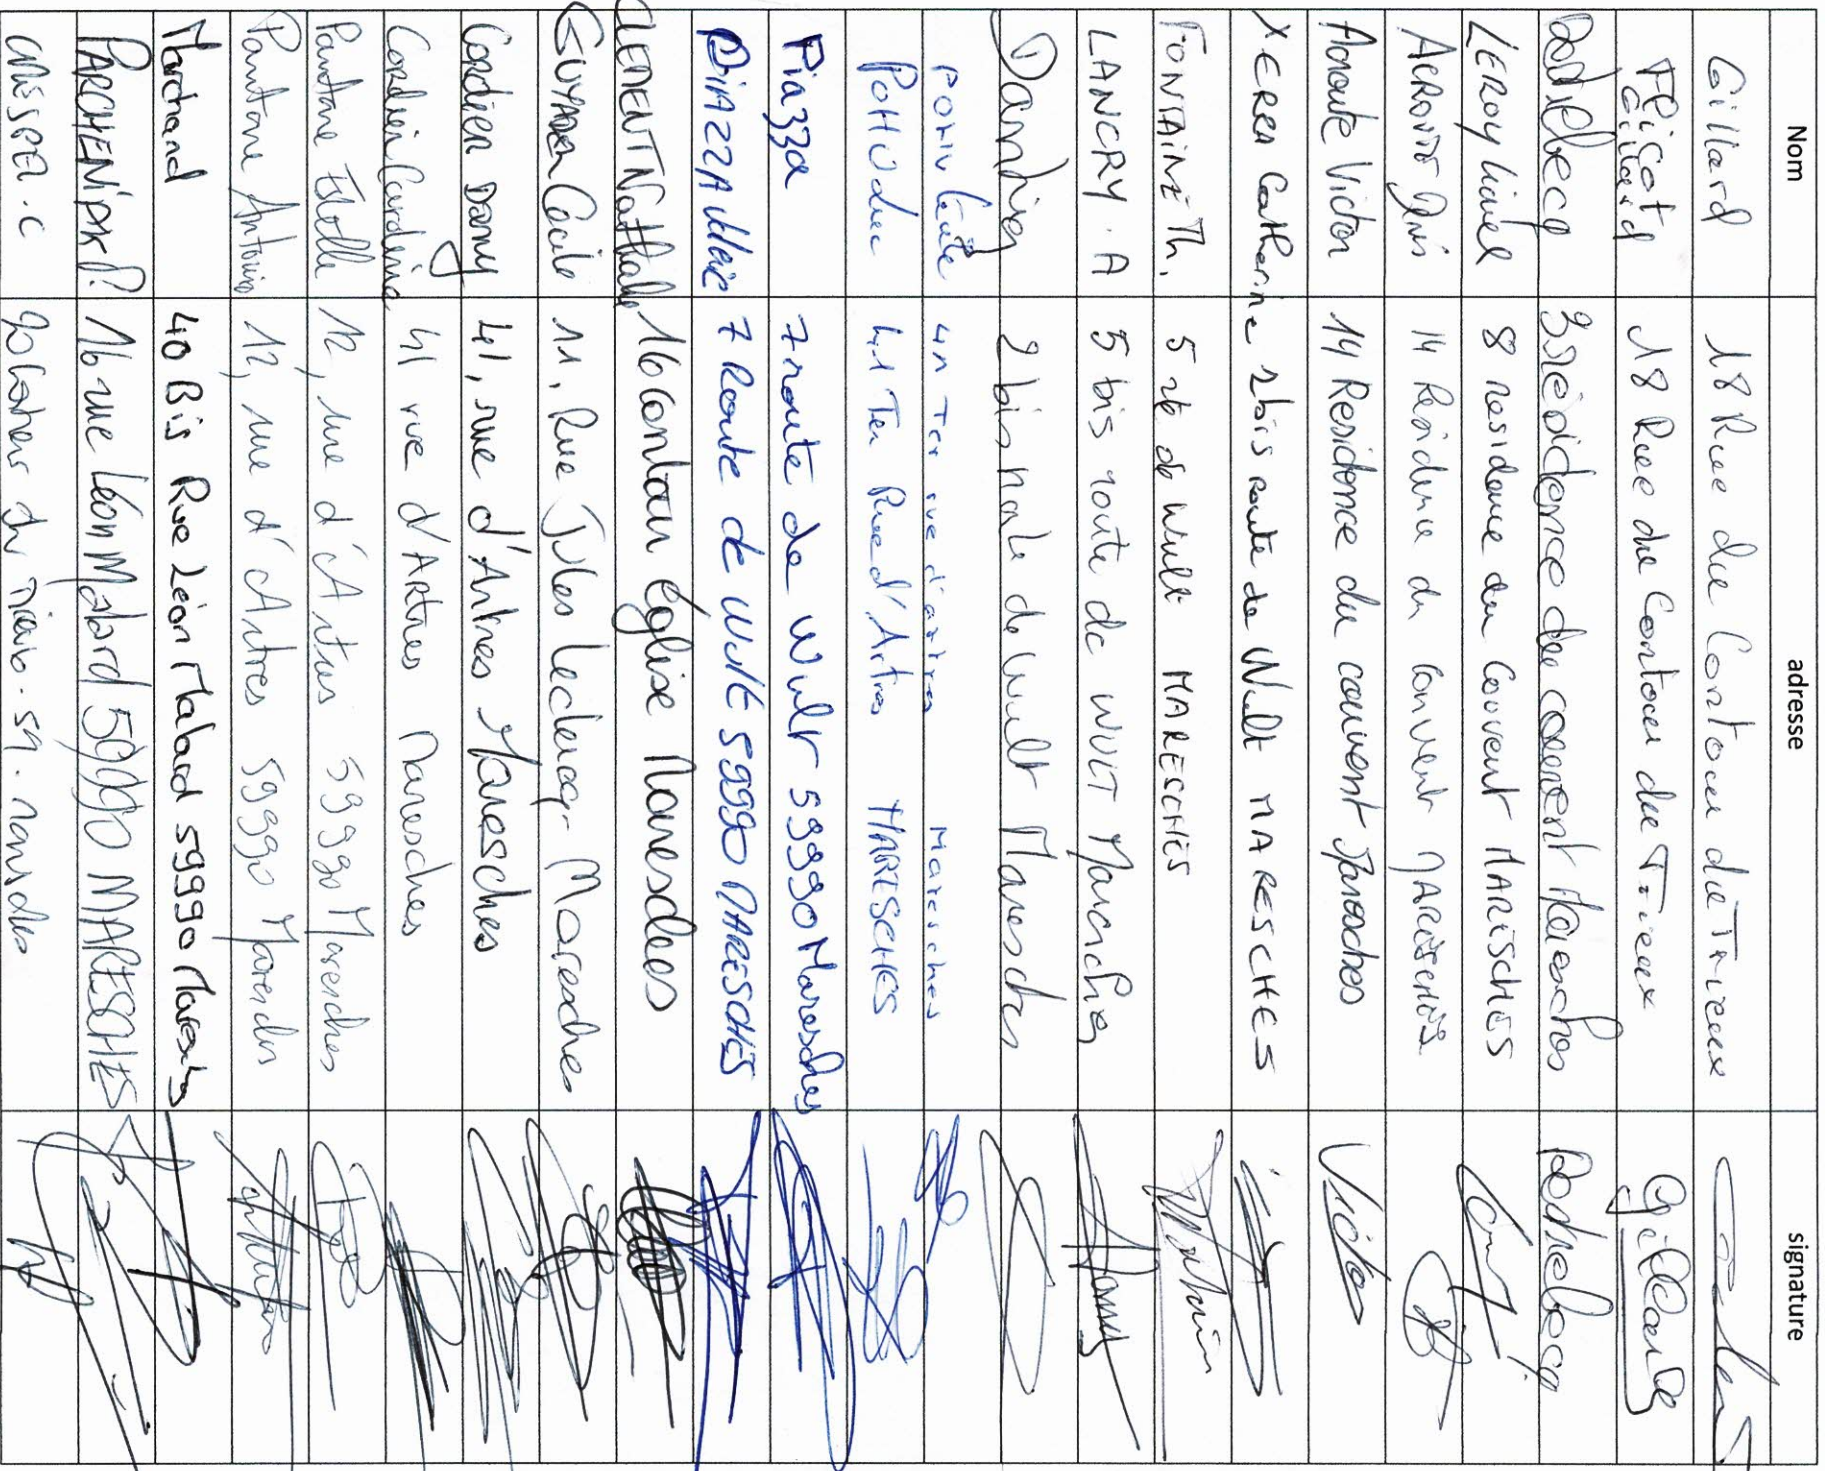 Nom adresse signature
Gillard 18 Rue du Contour du Trieux
Ficot
Gillard 18 Rue du Contour du Trieux Gillard
3 résidence du couvent Maresches
LEROY Lionel 8 residence du Couvent MARESCHES
14 Résidence du Couvent MARESCHES
Amoute Victor 14 Residence du couvent Maresches Victor
XERRA Catherine 2 bis route de Wult MARESCHES
FONTAINE Th. 5 rte de Wult MARESCHES
LANCRY . A 5 bis route de WULT Maresches
2 bis route de wult Maresches
41 Ter rue d'artres Maresches
41 Ter Rue d'Artres MARESCHES
Piazza 7 route de Wult 59990 Maresches
PIAZZA 7 Route de WULT 59990 MARESCHES
CLEMENT Nathalie 16 contour église Maresches
Cécile 11, Rue Jules Leclercq. Maresches
Cordier Dany 41, rue d'Artres Maresches
Cordier 41 rue d'Artres Maresches
Pantone Estelle 12, rue d'Artres 59990 Maresches
Pantone Antoine 12, rue d'Artres 59990 Maresches
Marchand 40 Bis Rue Léon Malard 59990 Maresches
16 rue Léon Malard 59990 MARESCHES
du Trieux . 59 . Maresches